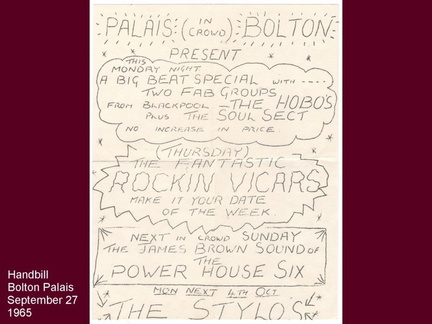 PALAIS (IN CROWD) BOLTON
PRESENT
THIS
MONDAY NIGHT
A BIG BEAT SPECIAL WITH ----
TWO FAB GROUPS
FROM BLACKPOOL - THE HOBO'S
PLUS THE SOUL SECT
NO INCREASE IN PRICE.
(THURSDAY)
THE FANTASTIC
ROCKIN VICARS
MAKE IT YOUR DATE
OF THE WEEK.
NEXT IN CROWD SUNDAY
THE JAMES BROWN SOUND OF
THE
POWER HOUSE SIX
MON NEXT 4TH OCT.
THE STYLOS
Handbill
Bolton Palais
September 27
1965